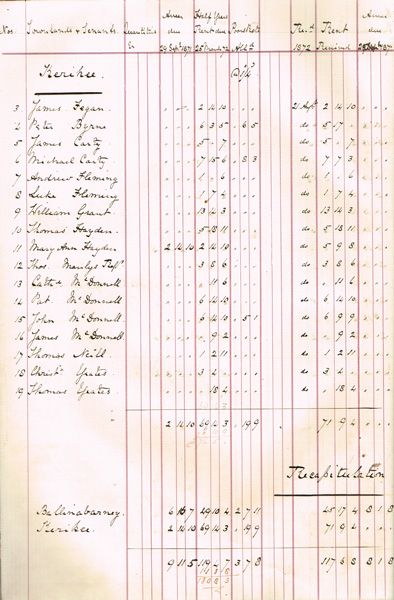 Nos. Townlands & Tenants. Quantities Arrear due 29 Septr 1871 Half Years Rent due 25 March 72 Poor Rate Alld. 1872 Rent Received Arrear due 1871
Kerikee.
3 James Fegan . . . 2 14 10 . . . 21 Augt 2 14 10 . . .
2 Peter Byrne . . . 6 3 5 . 6 5 do 5 17 . . . .
5 James Carty . . . . 5 . 7 . . . do 5 . 7 . . .
6 Michael Carty . . . 7 15 6 . 8 3 do 7 7 3 . . .
7 Andrew Fleming . . . 1 . 6 . . . do 1 . 6 . . .
8 Luke Fleming . . . 1 7 4 . . . do 1 7 4 . . .
9 William Grant . . . 13 14 3 . . . do 13 14 3 . . .
10 Thomas Hayden . . . 5 18 11 . . . do 5 18 11 . . .
11 Mary Ann Hayden 2 14 10 2 14 10 . . . do 5 9 8 . . .
12 Thos. . . . 3 8 6 . . . do 3 8 6 . . .
13 McDonnell . . . . 11 6 . . . do . 11 6 . . .
14 Pat. McDonnell . . . 6 14 10 . . . do 6 14 10 . . .
15 John McDonnell . . . 6 14 10 . 5 1 do 6 9 9 . . .
16 James McDonnell . . . . 9 2 . . . do . 9 2 . . .
17 Thomas Neill . . . 1 2 11 . . . do 1 2 11 . . .
18 Christr Yeates . . . 3 4 . . . . do 3 4 . . . .
19 Thomas Yeates . . . . 18 4 . . . do . 18 4 . . .
2 14 10 69 14 3 . 19 9 71 9 4 . . .
Recapitulation
Ballinabarney. 6 16 7 49 10 4 2 7 11 45 17 4 8 1 8
Kerikee. 2 14 10 69 14 3 . 19 9 71 9 4 . . .
9 11 5 119 4 7 3 7 8 117 6 8 8 1 8